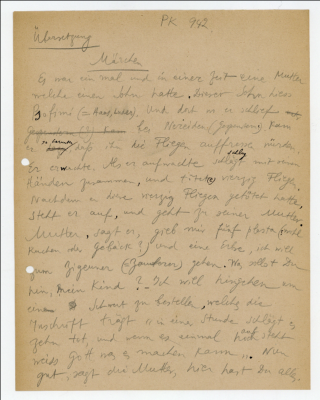 PK 942
Übersetzung
Märchen
Es war ein mal und in einer Zeit eine Mutter
welche einen Sohn hatte, dieser Sohn hiess
Und dort wo er schlief
bei Nereiden kam
es dass ihn die Fliegen auffressen würden.
Er erwachte. Als er aufwachte schlug mit seinen
Händen zusammen, und tötete vierzig Fliegen.
Nachdem er diese vierzig Fliegen getötet hatte,
steht er auf, und geht zu seiner Mutter.
Mutter, sagt er, gieb mir fünf
Kuchen und eine ich will
zum Zigeuner gehen. Wo willst Du
hin, mein Kind? - Ich will hingehen um
ein zu bestellen, welche die
Inschrift trägt "in einer Stunde schlägt es
zehn tot, und wenn es einmal aufsteht
weiss Gott was es machen kann". Nun
gut, sagt die Mutter, hier hast Du alles.